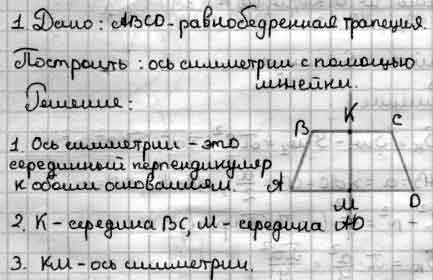 1. Дано: ABCD - равнобедренная трапеция.
Построить: ось симметрии с помощью
линейки.
Решение:
1. Ось симметрии - это
серединный перпендикуляр
к обоим основаниям.
K
B
C
A
M
D
2. K - середина BC, M - середина AD
3. KM - ось симметрии.